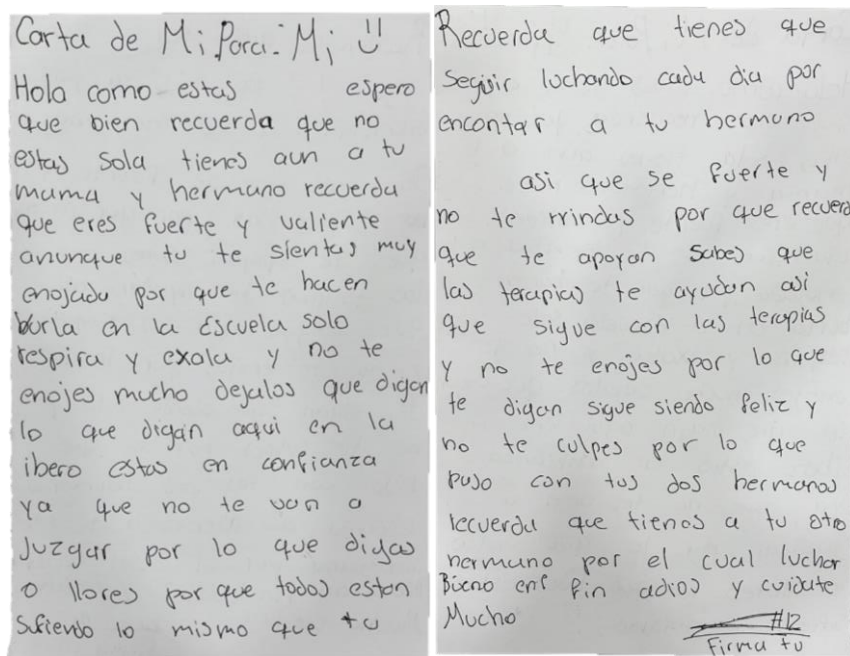 Carta de Mi Para: Mi
Hola como estas espero
que bien recuerda que no
estas sola tienes aun a tu
mama y hermano recuerda
que eres fuerte y valiente
anunque tu te sientas muy
enojada por que te hacen
burla en la Escuela solo
respira y exola y no te
enojes mucho dejalos que digan
lo que digan aqui en la
ibero estas en confianza
ya que no te van a
Juzgar por lo que digas
o llores por que todos estan
Sufiendo lo mismo que tu
Recuerda que tienes que
seguir luchando cada dia por
encontar a tu hermano
asi que se fuerte y
no te rrindas por que recuerd
que te apoyan Sabes que
las terapias te ayudan asi
que sigue con las terapias
y no te enojes por lo que
te digan sigue siendo feliz y
no te culpes por lo que
paso con tus dos hermanos
recuerda que tienes a tu otro
hermano por el cual luchar
Bueno en fin adios y cuidate
Mucho
#12
Firma tu